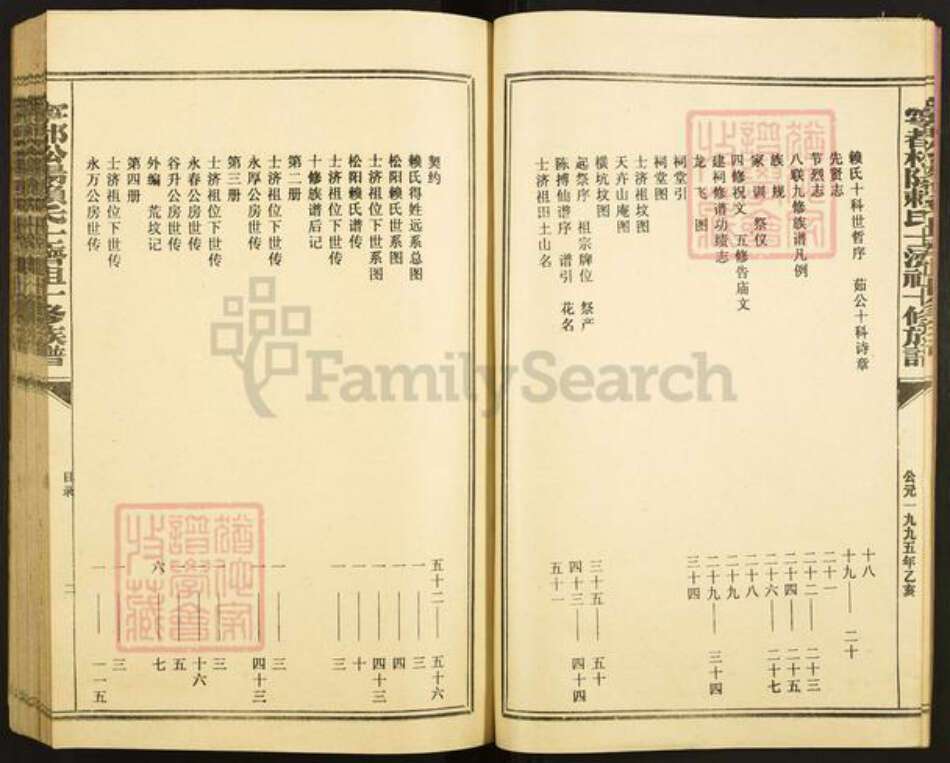 公元一九九五年乙亥
赖氏十科世哲序 茹公十科诗章 十八
先贤志 十九——二十
节烈志 二十一
八联九修族谱凡例 二十二——二十三
族规 二十四——二十五
家训 祭仪 二十六——二十七
四修祝文 五修告庙文 二十八
建祠修谱功绩志 二十九
龙飞图 二十九——三十四
祠堂引 三十四
祠堂图
士济祖坟图
天卉山庵图
横坑坟图
起祭序 祖宗牌位 祭产 三十五——五十
陈搏仙谱序 谱引 花名 四十三——四十四
士济祖田土山名 五十一
契约 五十二——五十六
赖氏得姓远系总图 一——三
松阳赖氏世系图 一——四
士济祖位下世系图 一——四十三
松阳赖氏谱传 一——十
士济祖位下世传 一——三
十修族谱后记
第二册
士济祖位下世传 一——三
永厚公房世传 一——四十三
第三册
士济公祖位下世传 一——三
永春公房世传 一——十六
谷升公房世传 一——五
外编 荒坟记 六——七
第四册
士济祖位下世传 一——三
永万公房世传 一——一一五
目录
二
FamilySearch